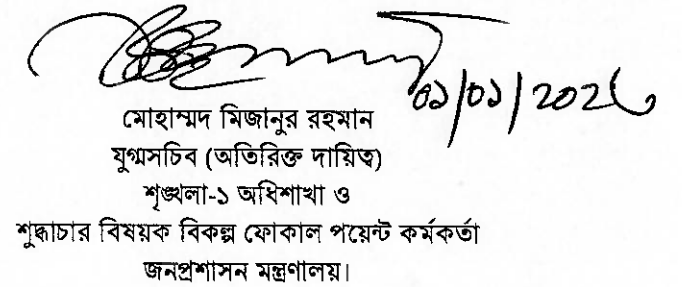 ০১/০১/2026
মোহাম্মদ মিজানুর রহমান
যুগ্মসচিব (অতিরিক্ত দায়িত্ব)
শৃঙ্খলা-১ অধিশাখা ও
শুদ্ধাচার বিষয়ক বিকল্প ফোকাল পয়েন্ট কর্মকর্তা
জনপ্রশাসন মন্ত্রণালয়।